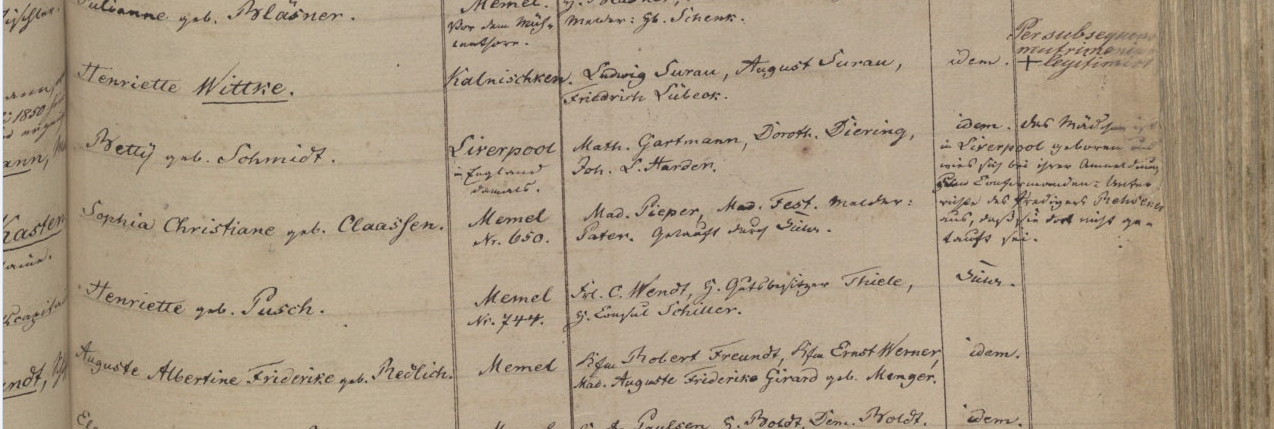 Julianne geb. Bläsner.
Memel.
Vor dem Müh-
lenthore.
Melder: Hb. Schenk.
Henriette Wittke.
Kalnischken.
Ludwig Surau, August Surau,
Friedrich Lübeck.
idem.
Per subsequens
matrimonium
legitimirt
Betty geb. Schmidt.
Liverpool
in England
damals.
Math. Gartmann, Doroth. Diering,
Joh. L. Harder.
idem. das Mädchen ist
in Liverpool geboren und
wies sich bei ihrer Anmeldung
zum Confirmanden-Unter
richte des Predigers
aus, daß sie dort nicht ge-
tauft sei.
Sophia Christiane geb. Claassen.
Memel
Nr. 650.
Mad. Pieper, Mad. Fest. Melder:
Pater. Getauft durch
Henriette geb. Pusch.
Memel
Nr. 744.
Frl. C. Wendt, H. Gutsbesitzer Thiele,
H. Consul Schiller.
Auguste Albertine Friderike geb. Redlich.
Memel
Kfm Robert Freundt, Kfm Ernst Werner,
Mad. Auguste Friderike Girard geb. Monger.
idem.
Paulsen, H. Boldt, Dem. Boldt.
idem.